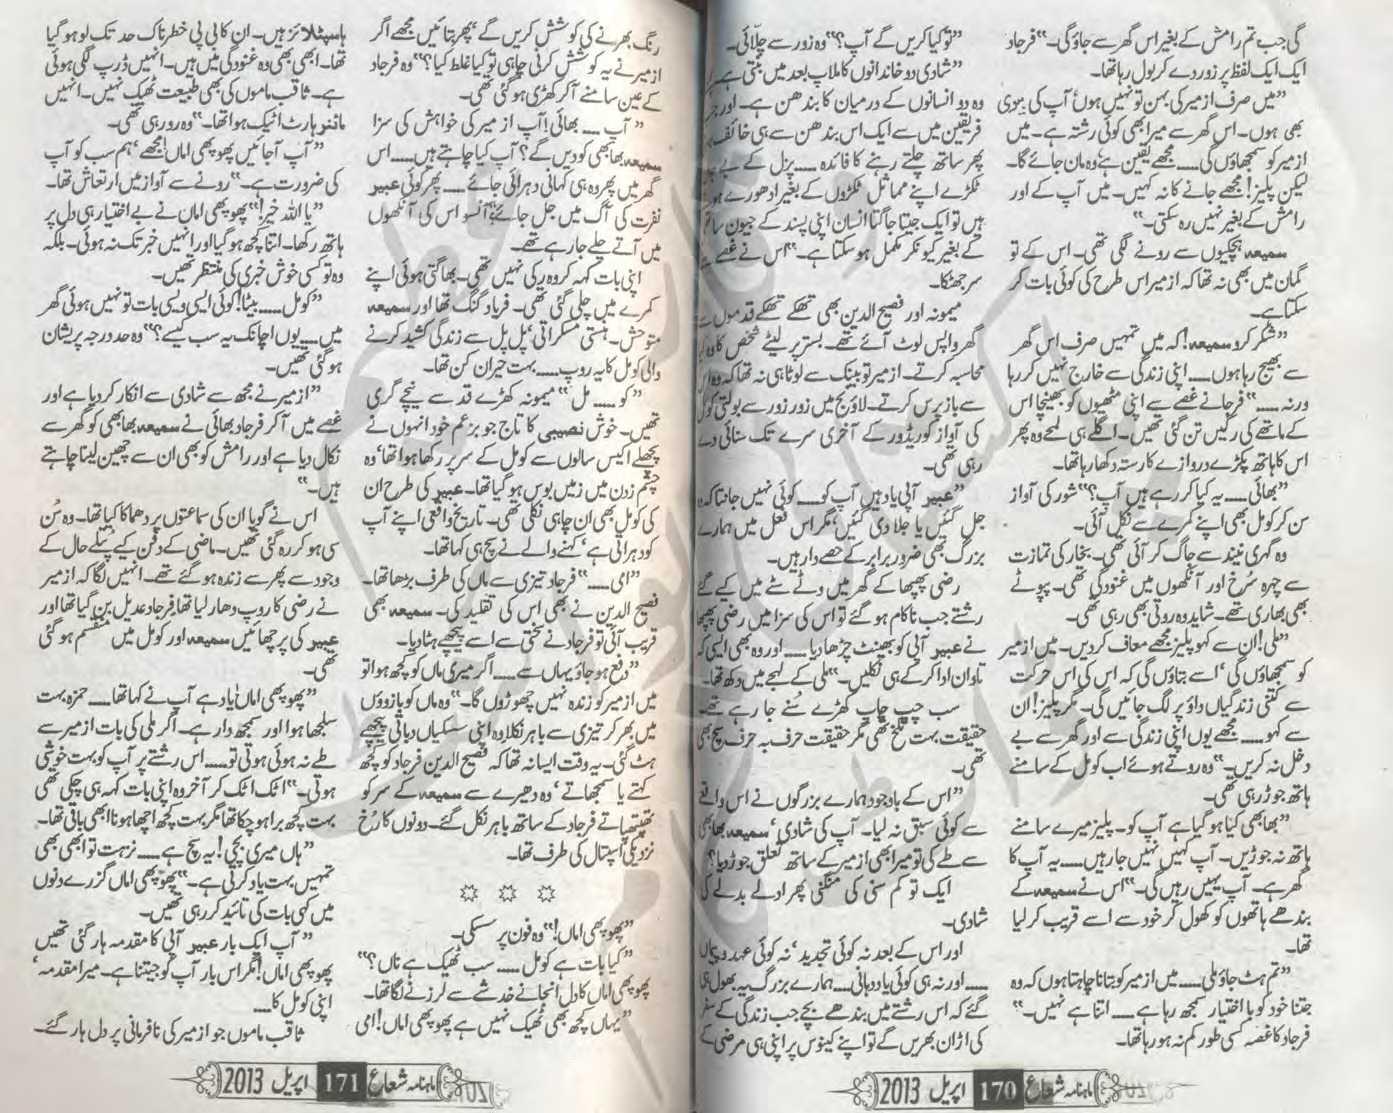 گی جب تم رامش کے بغیر اس گھر سے جاؤ گی۔“ فرجاد
ایک ایک لفظ پر زور دے کر بول رہا تھا۔
”میں صرف ازمیر کی بہن تو نہیں ہوں‘ آپ کی بیوی
بھی ہوں۔ اس گھر سے میرا بھی کوئی رشتہ ہے۔ میں
ازمیر کو سمجھاؤں گی۔۔۔۔ مجھے یقین ہے وہ مان جائے گا۔
لیکن پلیز! مجھے جانے کا نہ کہیں۔ میں آپ کے اور
رامش کے بغیر نہیں رہ سکتی۔“
سمیعہ ہچکیوں سے رونے لگی تھی۔ اس کے تو
گمان میں بھی نہ تھا کہ ازمیر اس طرح کی کوئی بات کر
سکتا ہے۔
”شکر کرو سمیعہ! کہ میں تمہیں صرف اس گھر
سے بھیج رہا ہوں۔۔۔۔ اپنی زندگی سے خارج نہیں کر رہا
ورنہ۔۔۔۔“ فرجاد نے غصے سے اپنی مٹھیوں کو بھینچا اس
کے ماتھے کی رگیں تن گئی تھیں۔ اگلے ہی لمحے وہ پھر
اس کا ہاتھ پکڑے دروازے کا رستہ دکھا رہا تھا۔
”بھائی۔۔۔۔ یہ کیا کر رہے ہیں آپ؟“ شور کی آواز
سن کر کومل بھی اپنے کمرے سے نکل آئی۔
وہ گہری نیند سے جاگ کر آئی تھی۔ بخار کی تمازت
سے چہرہ سرخ اور آنکھوں میں غنودگی تھی۔ پپوٹے
بھی بھاری تھے۔ شاید وہ روتی بھی رہی تھی۔
”ملی! ان سے کہو پلیز مجھے معاف کردیں۔ میں ازمیر
کو سمجھاؤں گی‘ اسے بتاؤں گی کہ اس کی اس حرکت
سے کتنی زندگیاں داؤ پر لگ جائیں گی۔ مگر پلیز! ان
سے کہو۔۔۔۔ مجھے یوں اپنی زندگی سے اور گھر سے بے
دخل نہ کریں۔“ وہ روتے ہوئے اب کومل کے سامنے
ہاتھ جوڑ رہی تھی۔
”بھابھی کیا ہوگیا ہے آپ کو۔ پلیز میرے سامنے
ہاتھ نہ جوڑیں۔ آپ کہیں نہیں جا رہیں۔۔۔۔ یہ آپ کا
گھر ہے۔ آپ یہیں رہیں گی۔“ اس نے سمیعہ کے
بندھے ہاتھوں کو کھول کر خود سے اسے قریب کرلیا
تھا۔
”تم ہٹ جاؤ ملی۔۔۔۔ میں ازمیر کو بتانا چاہتا ہوں کہ وہ
جتنا خود کو بااختیار سمجھ رہا ہے۔۔۔۔ اتنا ہے نہیں۔“
فرجاد کا غصہ کسی طور کم نہ ہو رہا تھا۔
”تو کیا کریں گے آپ؟“ وہ زور سے چلائی۔
”شادی دو خاندانوں کا ملاپ بعد میں بنتی ہے
وہ دو انسانوں کے درمیان کا بندھن ہے۔ اور
فریقین میں سے ایک اس بندھن سے ہی خائف
پھر ساتھ چلتے رہنے کا فائدہ۔۔۔۔ پزل کے
ٹکڑے اپنے مماثل ٹکڑوں کے بغیر ادھورے
ہیں تو ایک جیتا جاگتا انسان اپنی پسند کے جیون
کے بغیر کیونکر مکمل ہوسکتا ہے۔“ اس نے غصے
سر جھٹکا۔
میمونہ اور فصیح الدین بھی تھکے تھکے قدموں
گھر واپس لوٹ آئے تھے۔ بستر پر لیٹے شخص کا وہ
محاسبہ کرتے۔ ازمیر تو بینک سے لوٹا ہی نہ تھا کہ وہ
سے بازپرس کرتے۔ لاؤنج میں زور زور سے بولتی
کی آواز کوریڈور کے آخری سرے تک سنائی دے
رہی تھی۔
”عبیر آپی یاد ہیں آپ کو۔۔۔۔ کوئی نہیں جانتا کہ
جل گئیں یا جلا دی گئیں‘ مگر اس فعل میں ہمارے
بزرگ بھی ضرور برابر کے حصے دار ہیں۔
رضی پھپھا کے گھر میں وٹے سٹے میں کیے گئے
رشتے جب ناکام ہوگئے تو اس کی سزا میں رضی پھپھا
نے عبیر آپی کو بھینٹ چڑھا دیا۔۔۔۔ اور وہ بھی ایسی کہ
تاوان ادا کر کے ہی نکلیں۔“ ملی کے لہجے میں دکھ تھا۔
سب چپ چاپ کھڑے سنے جا رہے تھے۔
حقیقت بہت تلخ تھی مگر حقیقت حرف بہ حرف سچ بھی
تھی۔
”اس کے باوجود ہمارے بزرگوں نے اس واقعے
سے کوئی سبق نہ لیا۔ آپ کی شادی‘ سمیعہ بھابھی
سے طے کی تو میرا بھی ازمیر کے ساتھ تعلق جوڑ دیا؟
ایک تو کم سنی کی منگنی پھر ادلے بدلے کی
شادی۔
اور اس کے بعد نہ کوئی تجدید‘ نہ کوئی عہد و پیماں
۔۔۔۔ اور نہ ہی کوئی یاد دہانی۔۔۔۔ ہمارے بزرگ یہ بھول ہی
گئے کہ اس رشتے میں بندھے بچے جب زندگی کے سفر
کی اڑان بھریں گے تو اپنے کینوس پر اپنی ہی مرضی کے
ماہنامہ شعاع 170 اپریل 2013
رنگ بھرنے کی کوشش کریں گے‘ پھر بتائیں مجھے اگر
ازمیر نے یہ کوشش کرنی چاہی تو کیا غلط کیا؟“ وہ فرجاد
کے عین سامنے آکر کھڑی ہوگئی تھی۔
”آپ۔۔۔۔ بھائی! آپ ازمیر کی خواہش کی سزا
سمیعہ بھابھی کو دیں گے؟ آپ کیا چاہتے ہیں۔۔۔۔ اس
گھر میں پھر وہ ہی کہانی دہرائی جائے۔۔۔۔ پھر کوئی عبیر
نفرت کی آگ میں جل جائے؟“ آنسو اس کی آنکھوں
میں آتے چلے جا رہے تھے۔
اپنی بات کہہ کر وہ رکی نہیں تھی۔ بھاگتی ہوئی اپنے
کمرے میں چلی گئی تھی۔ فرجاد گنگ تھا اور سمیعہ
متوحش۔ ہنستی مسکراتی‘ پل پل سے زندگی کشید کرنے
والی کومل کا یہ روپ۔۔۔۔ بہت حیران کن تھا۔
”کو۔۔۔۔ مل“ میمونہ کھڑے قد سے نیچے گری
تھیں۔ خوش نصیبی کا تاج جو بزعم خود انہوں نے
پچھلے اکیس سالوں سے کومل کے سر پر رکھا ہوا تھا‘ وہ
چشم زدن میں زمین بوس ہوگیا تھا۔ عبیر کی طرح ان
کی کومل بھی ان چاہی نکلی تھی۔ تاریخ واقعی اپنے آپ
کو دہراتی ہے‘ کہنے والے نے سچ ہی کہا تھا۔
”امی۔۔۔۔“ فرجاد تیزی سے ماں کی طرف بڑھا تھا۔
فصیح الدین نے بھی اس کی تقلید کی۔ سمیعہ بھی
قریب آئی تو فرجاد نے سختی سے اسے پیچھے ہٹا دیا۔
”دفع ہوجاؤ یہاں سے۔۔۔۔ اگر میری ماں کو کچھ ہوا تو
میں ازمیر کو زندہ نہیں چھوڑوں گا۔“ وہ ماں کو بازوؤں
میں بھر کر تیزی سے باہر نکلا وہ اپنی سسکیاں دباتی پیچھے
ہٹ گئی۔ یہ وقت ایسا نہ تھا کہ فصیح الدین فرجاد کو کچھ
کہتے یا سمجھاتے‘ وہ دھیرے سے سمیعہ کے سر کو
تھپتھپاتے فرجاد کے ساتھ باہر نکل گئے۔ دونوں کا رخ
نزدیکی اسپتال کی طرف تھا۔
”پھوپھی اماں!“ وہ فون پر سسکی۔
”کیا بات ہے کومل۔۔۔۔ سب ٹھیک ہے ناں؟“
پھوپھی اماں کا دل انجانے خدشے سے لرزنے لگا تھا۔
”یہاں کچھ بھی ٹھیک نہیں ہے پھوپھی اماں! امی
ہاسپٹلائز ہیں۔ ان کا بی پی خطرناک حد تک لو ہوگیا
تھا۔ ابھی بھی وہ غنودگی میں ہیں۔ انہیں ڈرپ لگی ہوئی
ہے۔ ثاقب ماموں کی بھی طبیعت ٹھیک نہیں۔ انہیں
مائنر ہارٹ اٹیک ہوا تھا۔“ وہ رو رہی تھی۔
”آپ آجائیں پھوپھی اماں! مجھے‘ ہم سب کو آپ
کی ضرورت ہے۔“ رونے سے آواز میں ارتعاش تھا۔
”یا اللہ خیر!“ پھوپھی اماں نے بے اختیار ہی دل پر
ہاتھ رکھا۔ اتنا کچھ ہوگیا اور انہیں خبر تک نہ ہوئی۔ بلکہ
وہ تو کسی خوش خبری کی منتظر تھیں۔
”کومل۔۔۔۔ بیٹا! کوئی ایسی ویسی بات تو نہیں ہوئی گھر
میں۔۔۔۔ یوں اچانک یہ سب کیسے؟“ وہ حد درجہ پریشان
ہوگئی تھیں۔
”ازمیر نے مجھ سے شادی سے انکار کردیا ہے اور
غصے میں آکر فرجاد بھائی نے سمیعہ بھابھی کو گھر سے
نکال دیا ہے اور رامش کو بھی ان سے چھین لینا چاہتے
ہیں۔“
اس نے گویا ان کی سماعتوں پر دھماکا کیا تھا۔ وہ سُن
سی ہوکر رہ گئی تھیں۔ ماضی کے دفن کیے پتلے حال کے
وجود سے پھر سے زندہ ہوگئے تھے۔ انہیں لگا کہ ازمیر
نے رضی کا روپ دھار لیا تھا‘ فرجاد عدیل بن گیا تھا اور
عبیر کی پرچھائیں سمیعہ اور کومل میں منقسم ہوگئی
تھی۔
”پھوپھی اماں! یاد ہے آپ نے کہا تھا۔۔۔۔ حمزہ بہت
سلجھا ہوا اور سمجھ دار ہے۔ اگر ملی کی بات ازمیر سے
طے نہ ہوئی ہوتی تو۔۔۔۔ اس رشتے پر آپ کو بہت خوشی
ہوتی۔“ اٹک اٹک کر آخر وہ اپنی بات کہہ ہی چکی تھی
بہت کچھ برا ہوچکا تھا مگر بہت کچھ اچھا ہونا ابھی باقی تھا۔
”ہاں میری بچی! یہ سچ ہے۔۔۔۔ نزہت تو ابھی بھی
تمہیں بہت یاد کرتی ہے۔“ پھوپھی اماں گزرے دنوں
میں کہی بات کی تائید کر رہی تھیں۔
”آپ ایک بار عبیر آپی کا مقدمہ ہار گئی تھیں
پھوپھی اماں! مگر اس بار آپ کو جیتنا ہے۔ میرا مقدمہ‘
اپنی کومل کا۔۔۔۔
ثاقب ماموں جو ازمیر کی نافرمانی پر دل ہار گئے۔
ماہنامہ شعاع 171 اپریل 2013